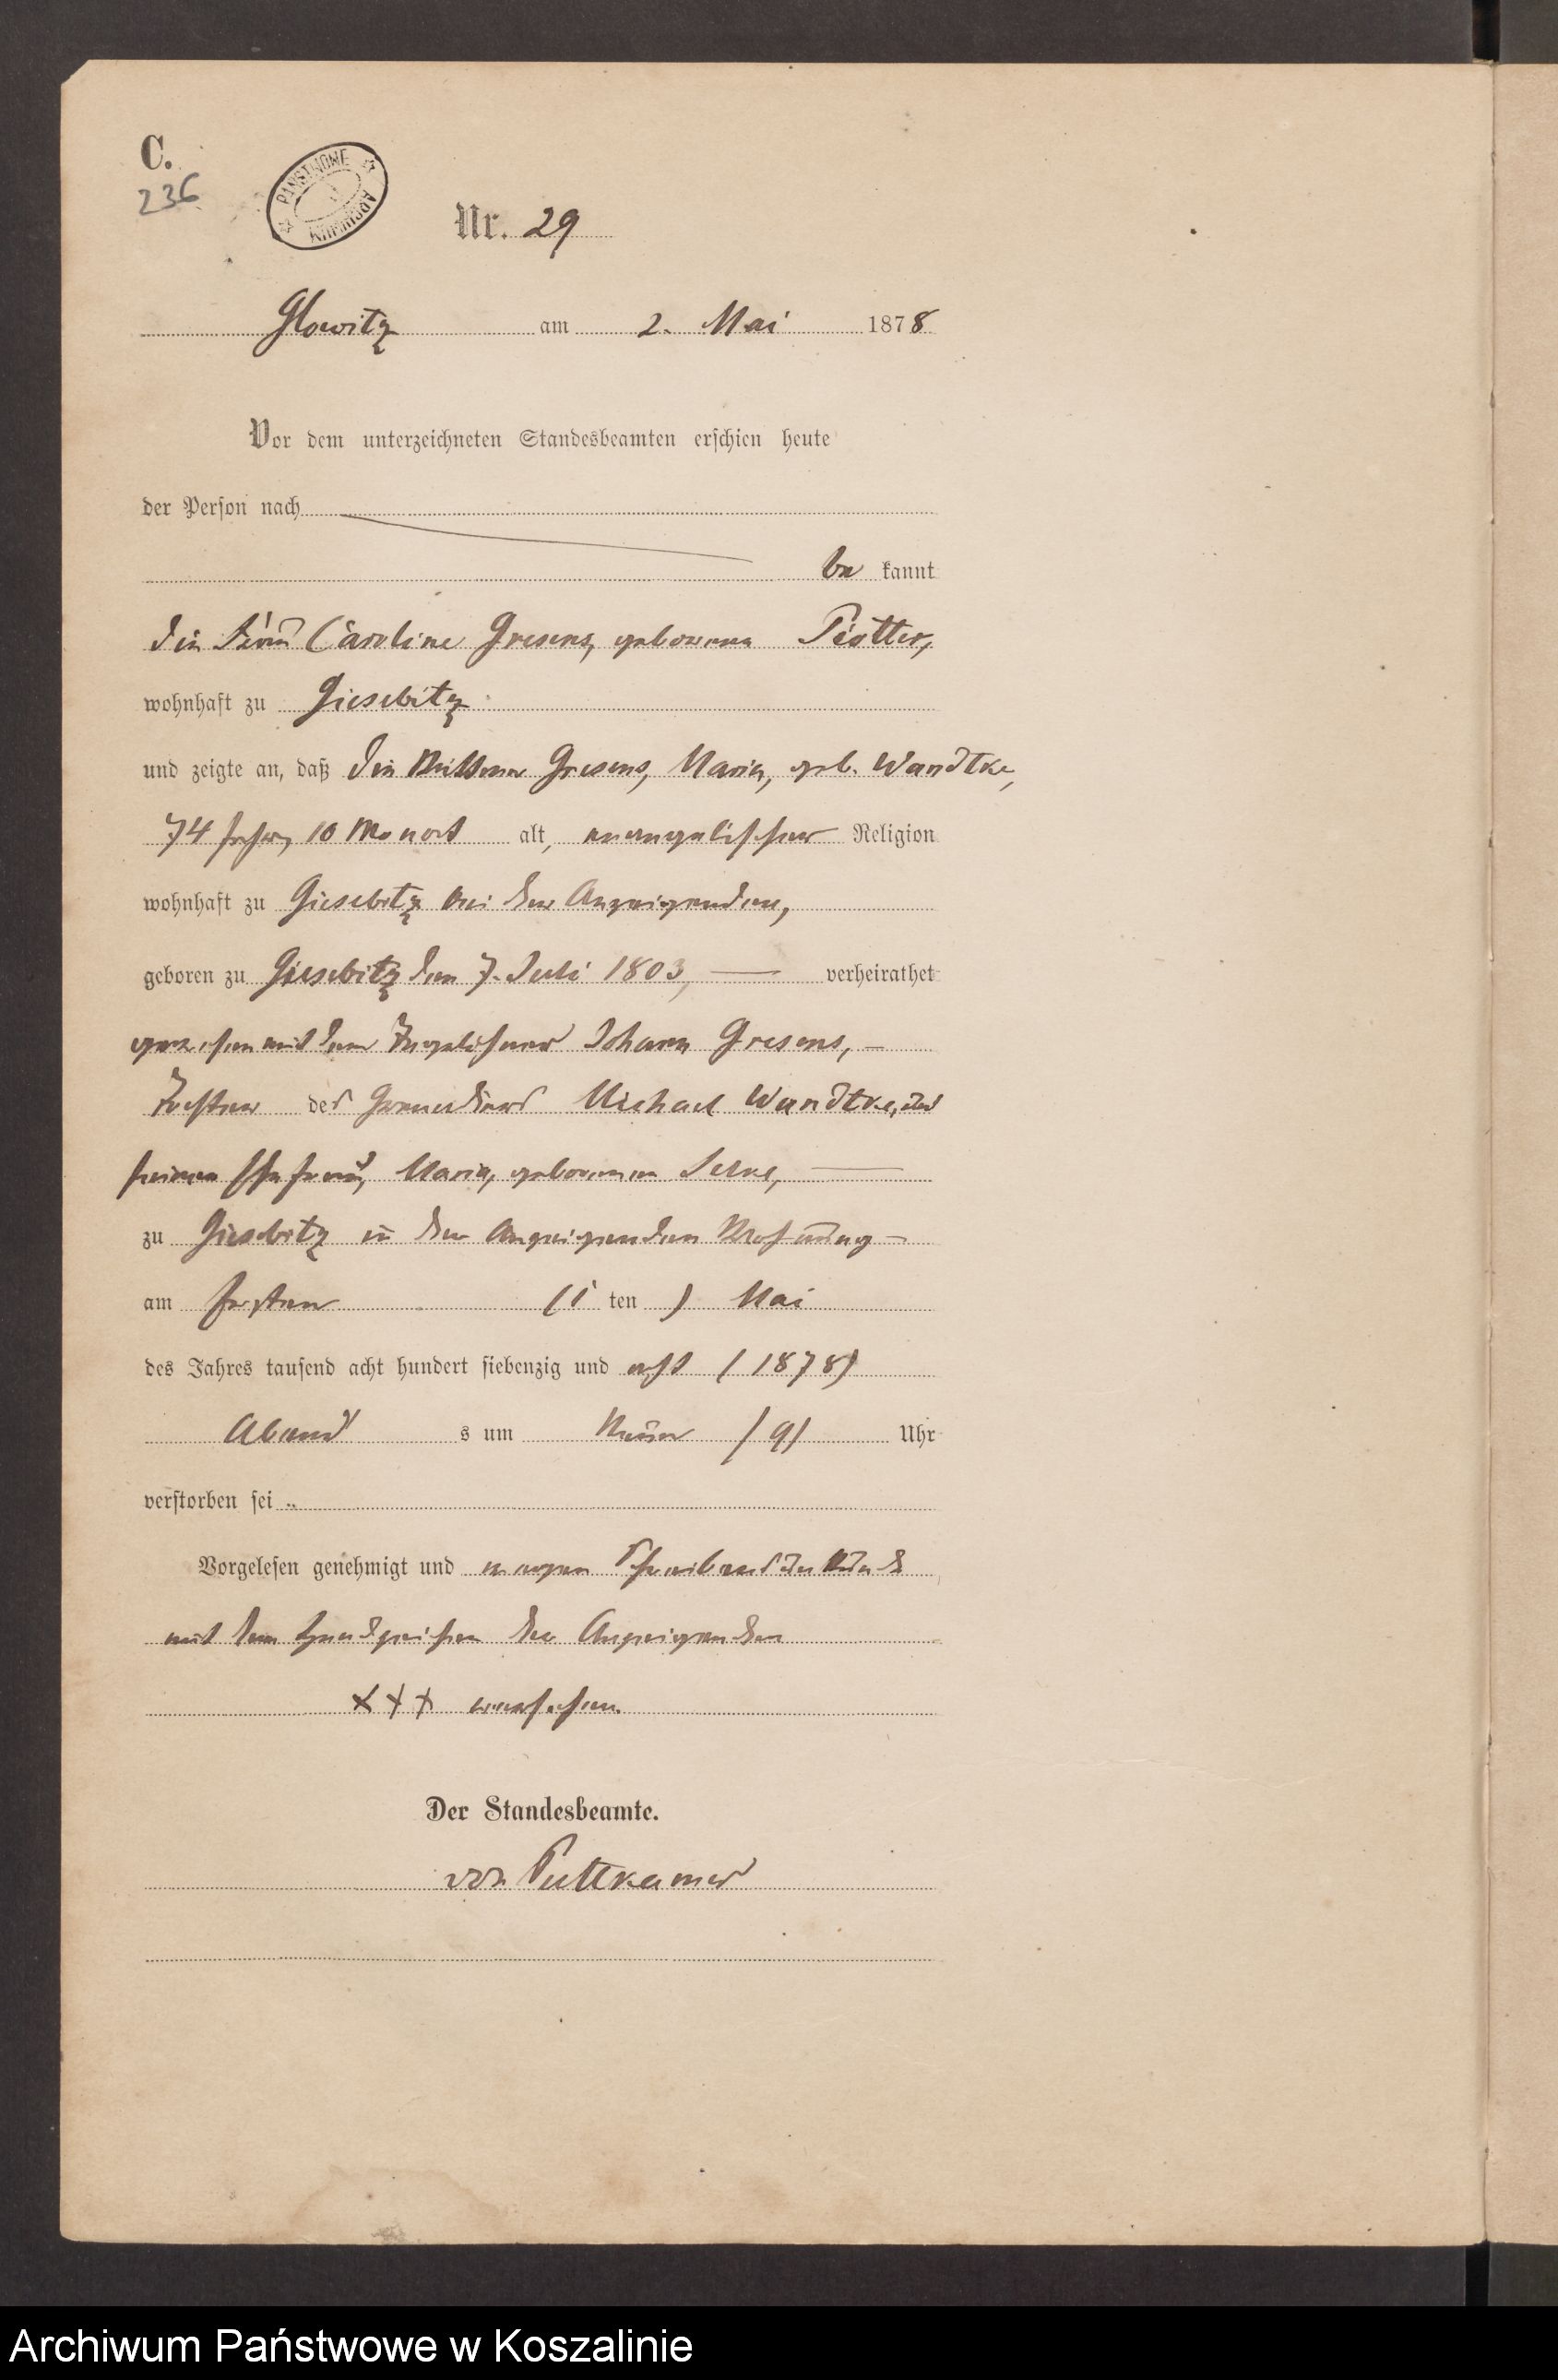 C.
236
PAŃSTWOWE ARCHIWUM
Nr. 29
Glowitz am 2. Mai 1878
Vor dem unterzeichneten Standesbeamten erschien heute
der Person nach
be kannt
die Frau Caroline Gresens, geborene Piotter,
wohnhaft zu Giesebitz
und zeigte an, daß die Wittwe Gresens, Maria, geb. Wandtke,
74 Jahre, 10 Monat alt, evangelischer Religion
wohnhaft zu Giesebitz bei der Anzeigenden,
geboren zu Giesebitz den 7. Juli 1803, verheirathet
gewesen mit dem Tagelöhner Johann Gresens,
Tochter des Michael Wandtke, und
seiner Ehefrau, Maria, geborenen
zu Giesebitz in der Anzeigenden Wohnung
am ersten (1 ten ) Mai
des Jahres tausend acht hundert siebenzig und acht (1878)
Abend s um Neun (9) Uhr
verstorben sei ..
Vorgelesen genehmigt und wegen Schreibensunkunde
mit dem Handzeichen der Anzeigenden
+++ versehen.
Der Standesbeamte.
von Puttkamer
Archiwum Państwowe w Koszalinie